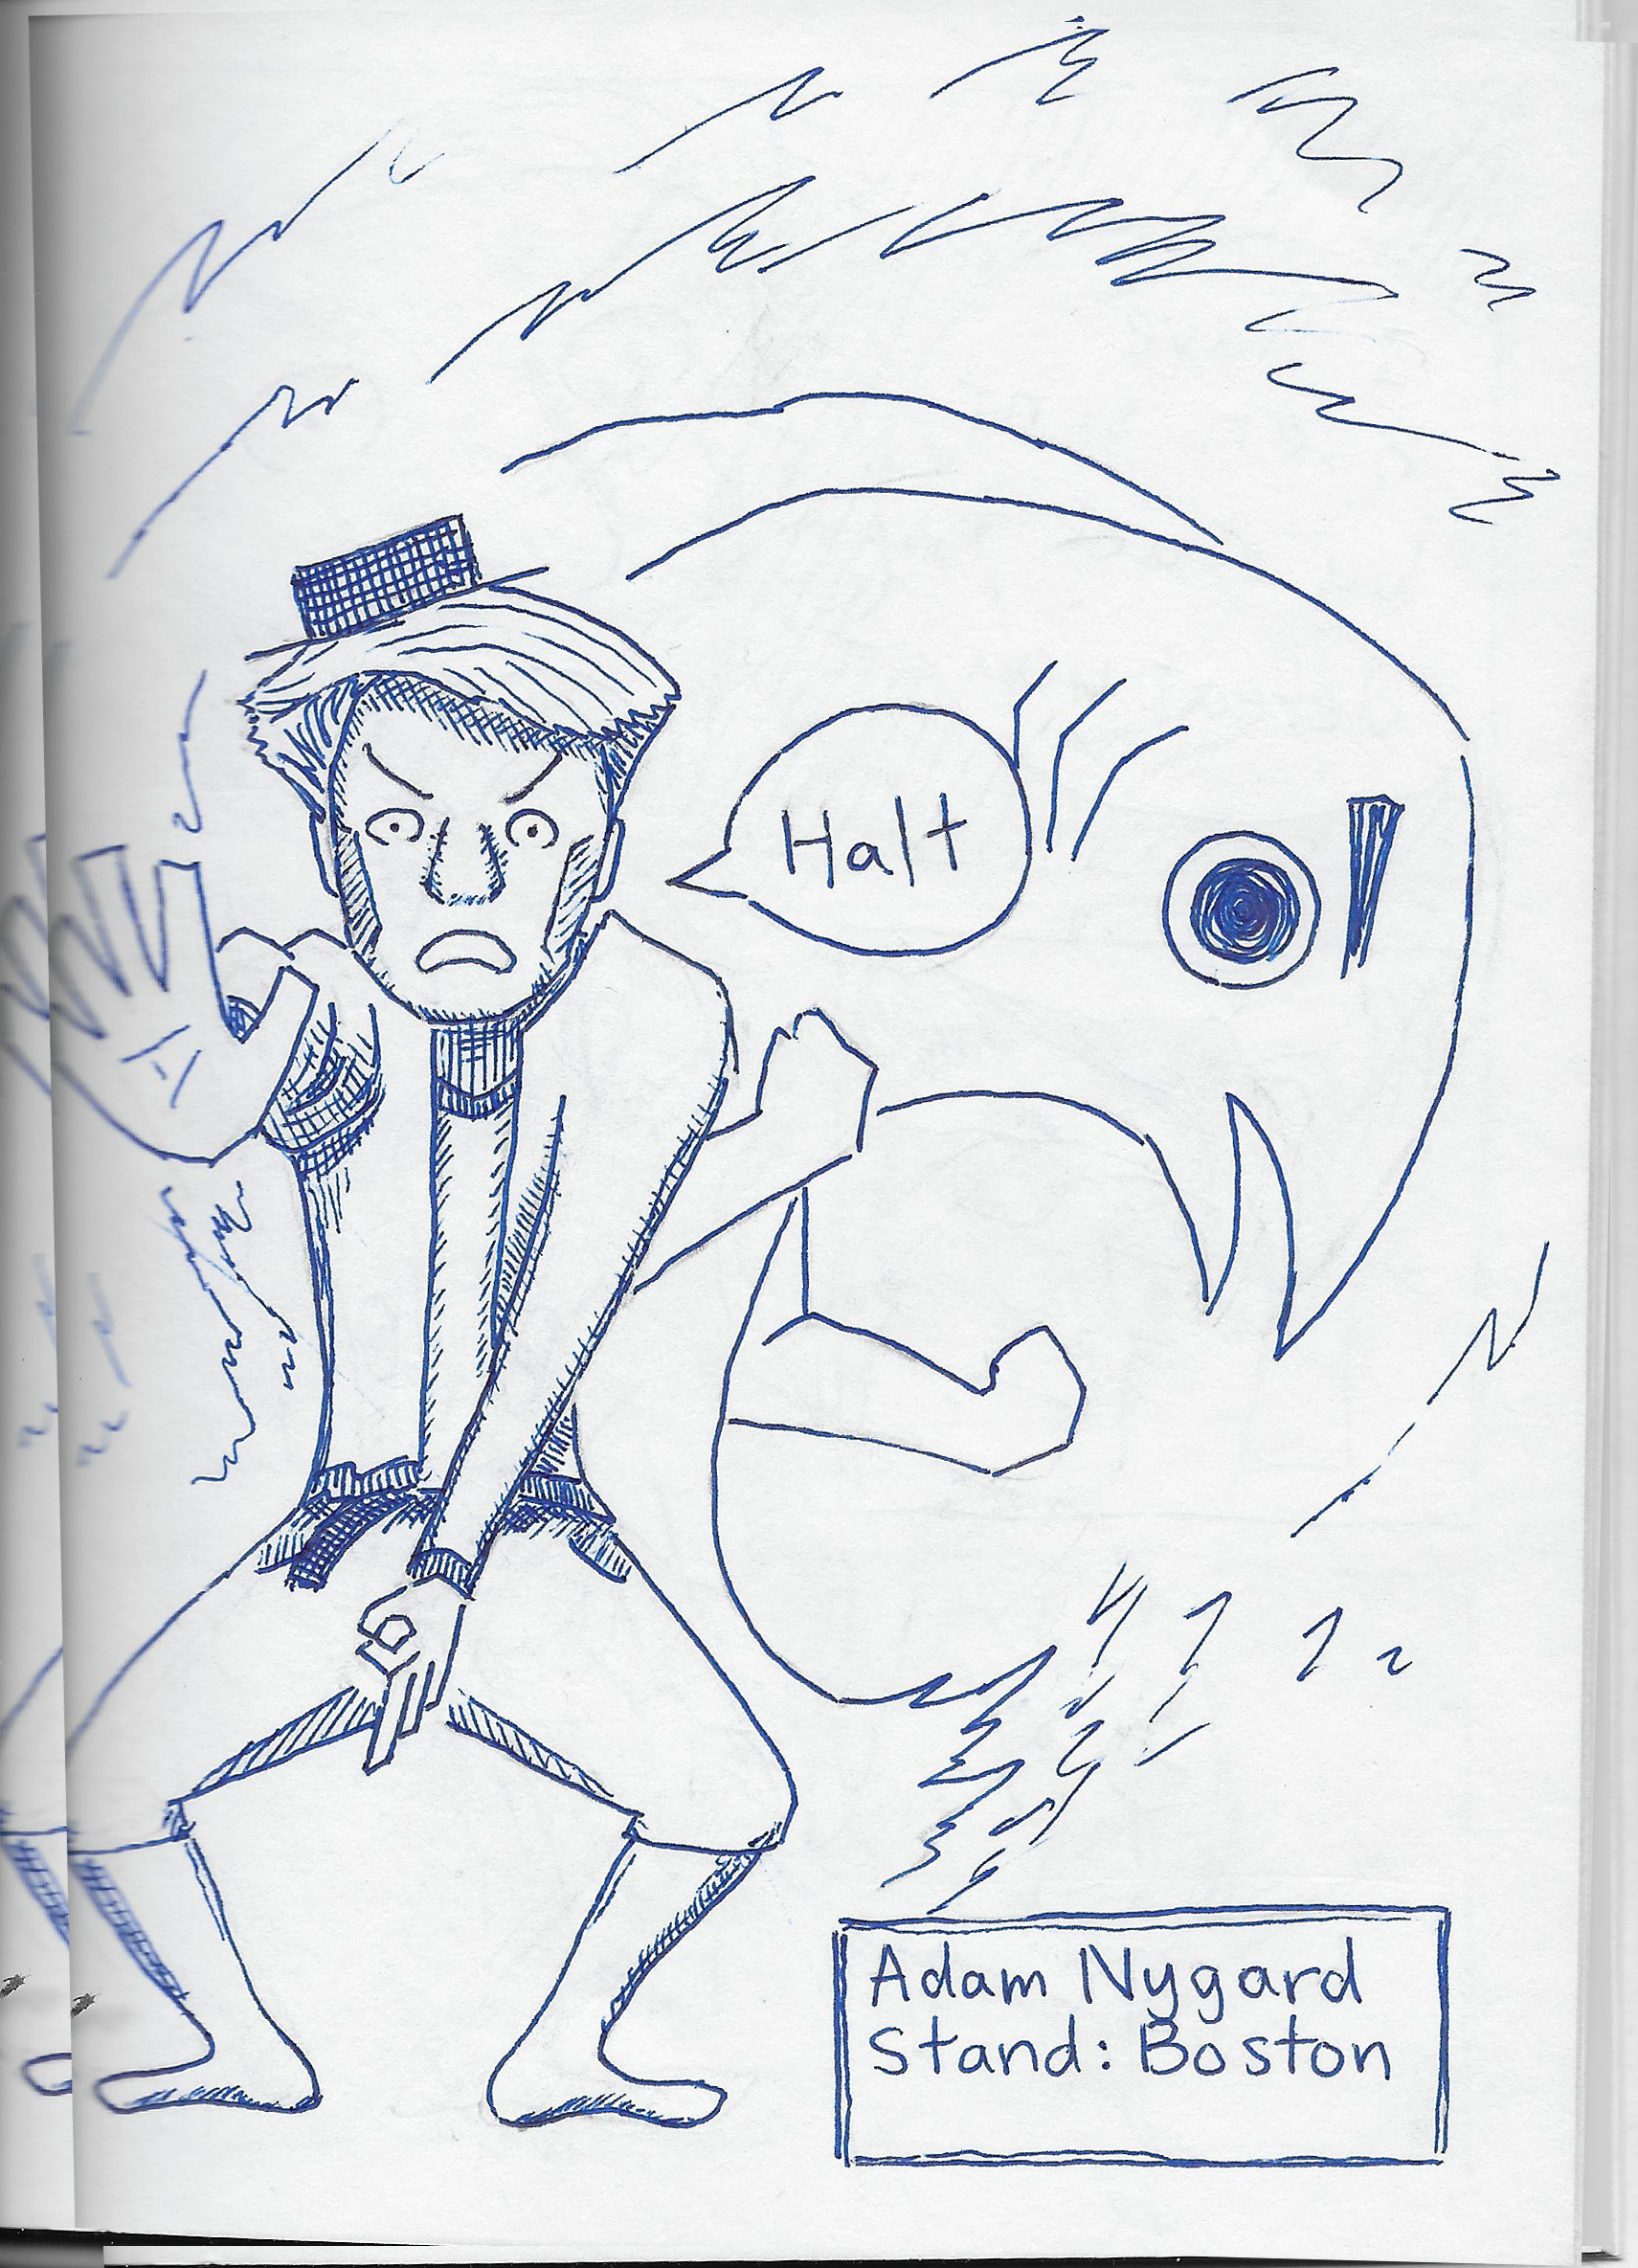 Halt
Adam Nygard
Stand: Boston